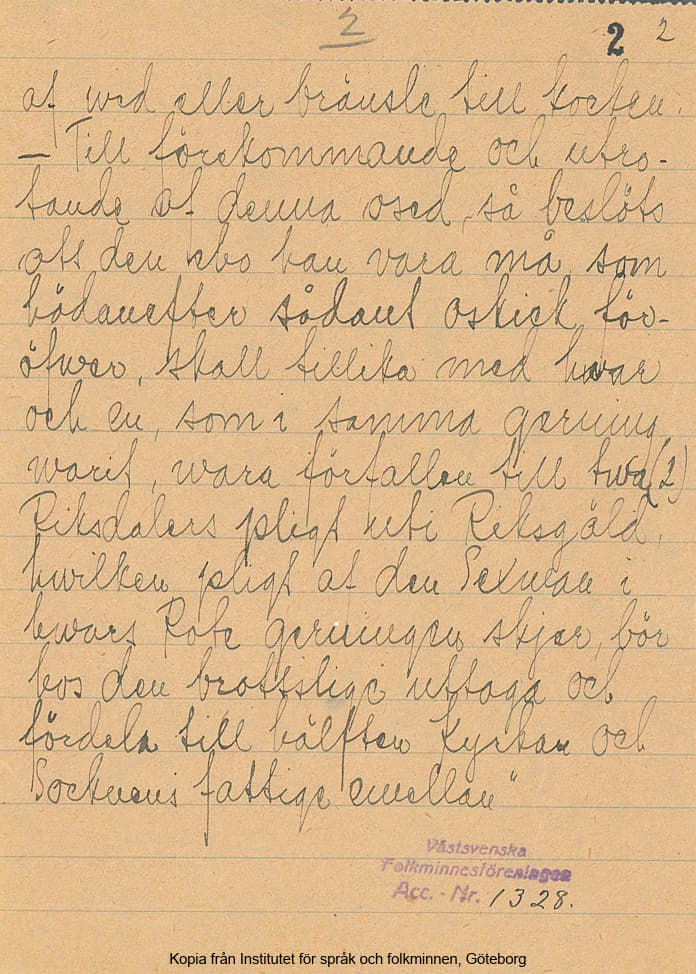 2
2 2
af wed eller bränsle till korken.
— Till förekommande och utro-
tande af denna osed, så beslöts
att den ebo han vara må, som
hädanefter sådant oskick för-
öfwer, skall tillika med hwar
och en, som i samma gerning
warit, wara förfallen till twå (2)
Riksdalers pligt uti Riksgäld,
hwilken pligt af den Sexman i
hwars Rote gerningen skjer, bör
hos den brottslige uttaga och
fördela till hälften Kyrkan och
Socknens fattige emellan"
Västsvenska
Folkminnesföreningen
Acc. - Nr. 1328.
Kopia från Institutet för språk och folkminnen, Göteborg